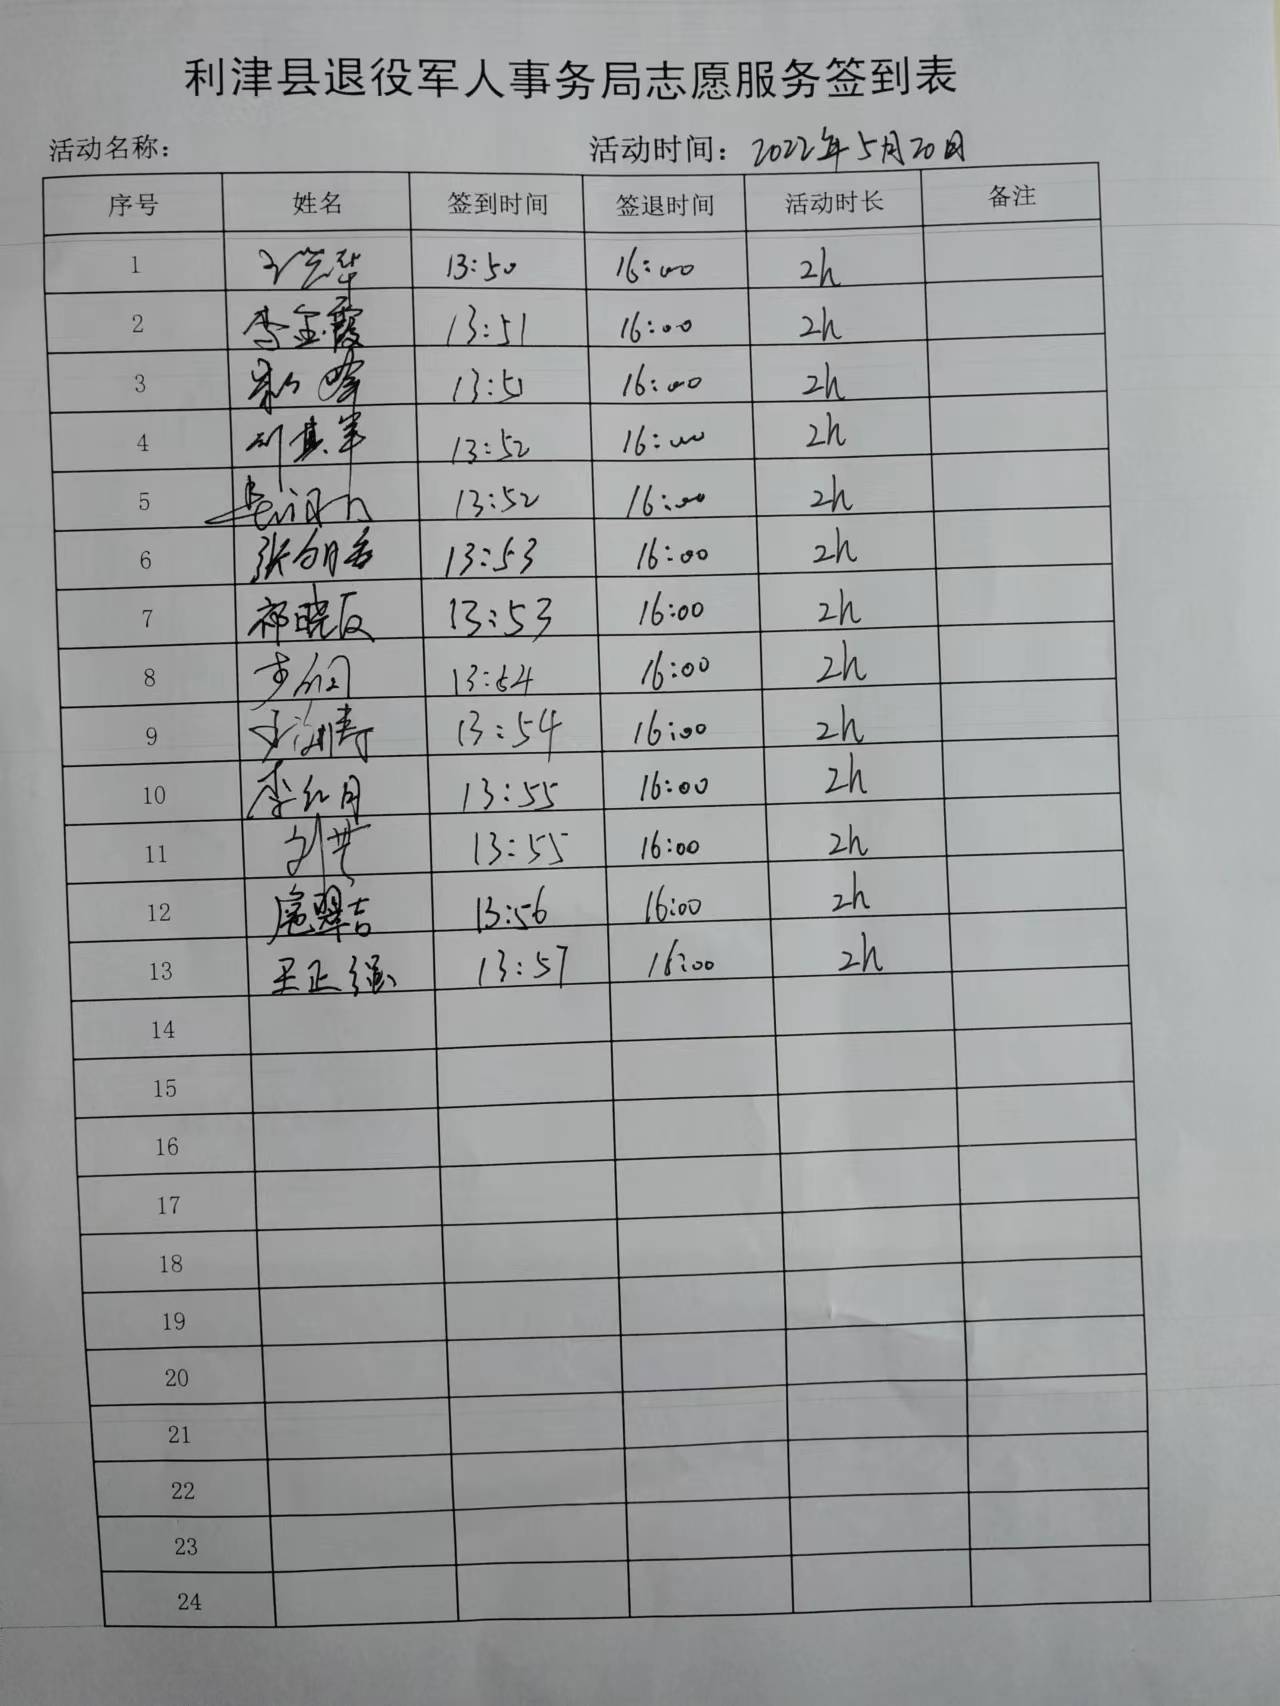 利津县退役军人事务局志愿服务签到表
活动名称： 活动时间：2022年5月20日
序号 姓名 签到时间 签退时间 活动时长 备注
1 13:50 16:00 2h
2 李金霞 13:51 16:00 2h
3 13:51 16:00 2h
4 13:52 16:00 2h
5 13:52 16:00 2h
6 13:53 16:00 2h
7 祁晓辰 13:53 16:00 2h
8 13:54 16:00 2h
9 13:54 16:00 2h
10 李红月 13:55 16:00 2h
11 13:55 16:00 2h
12 扈翠吉 13:56 16:00 2h
13 王正强 13:57 16:00 2h
14
15
16
17
18
19
20
21
22
23
24